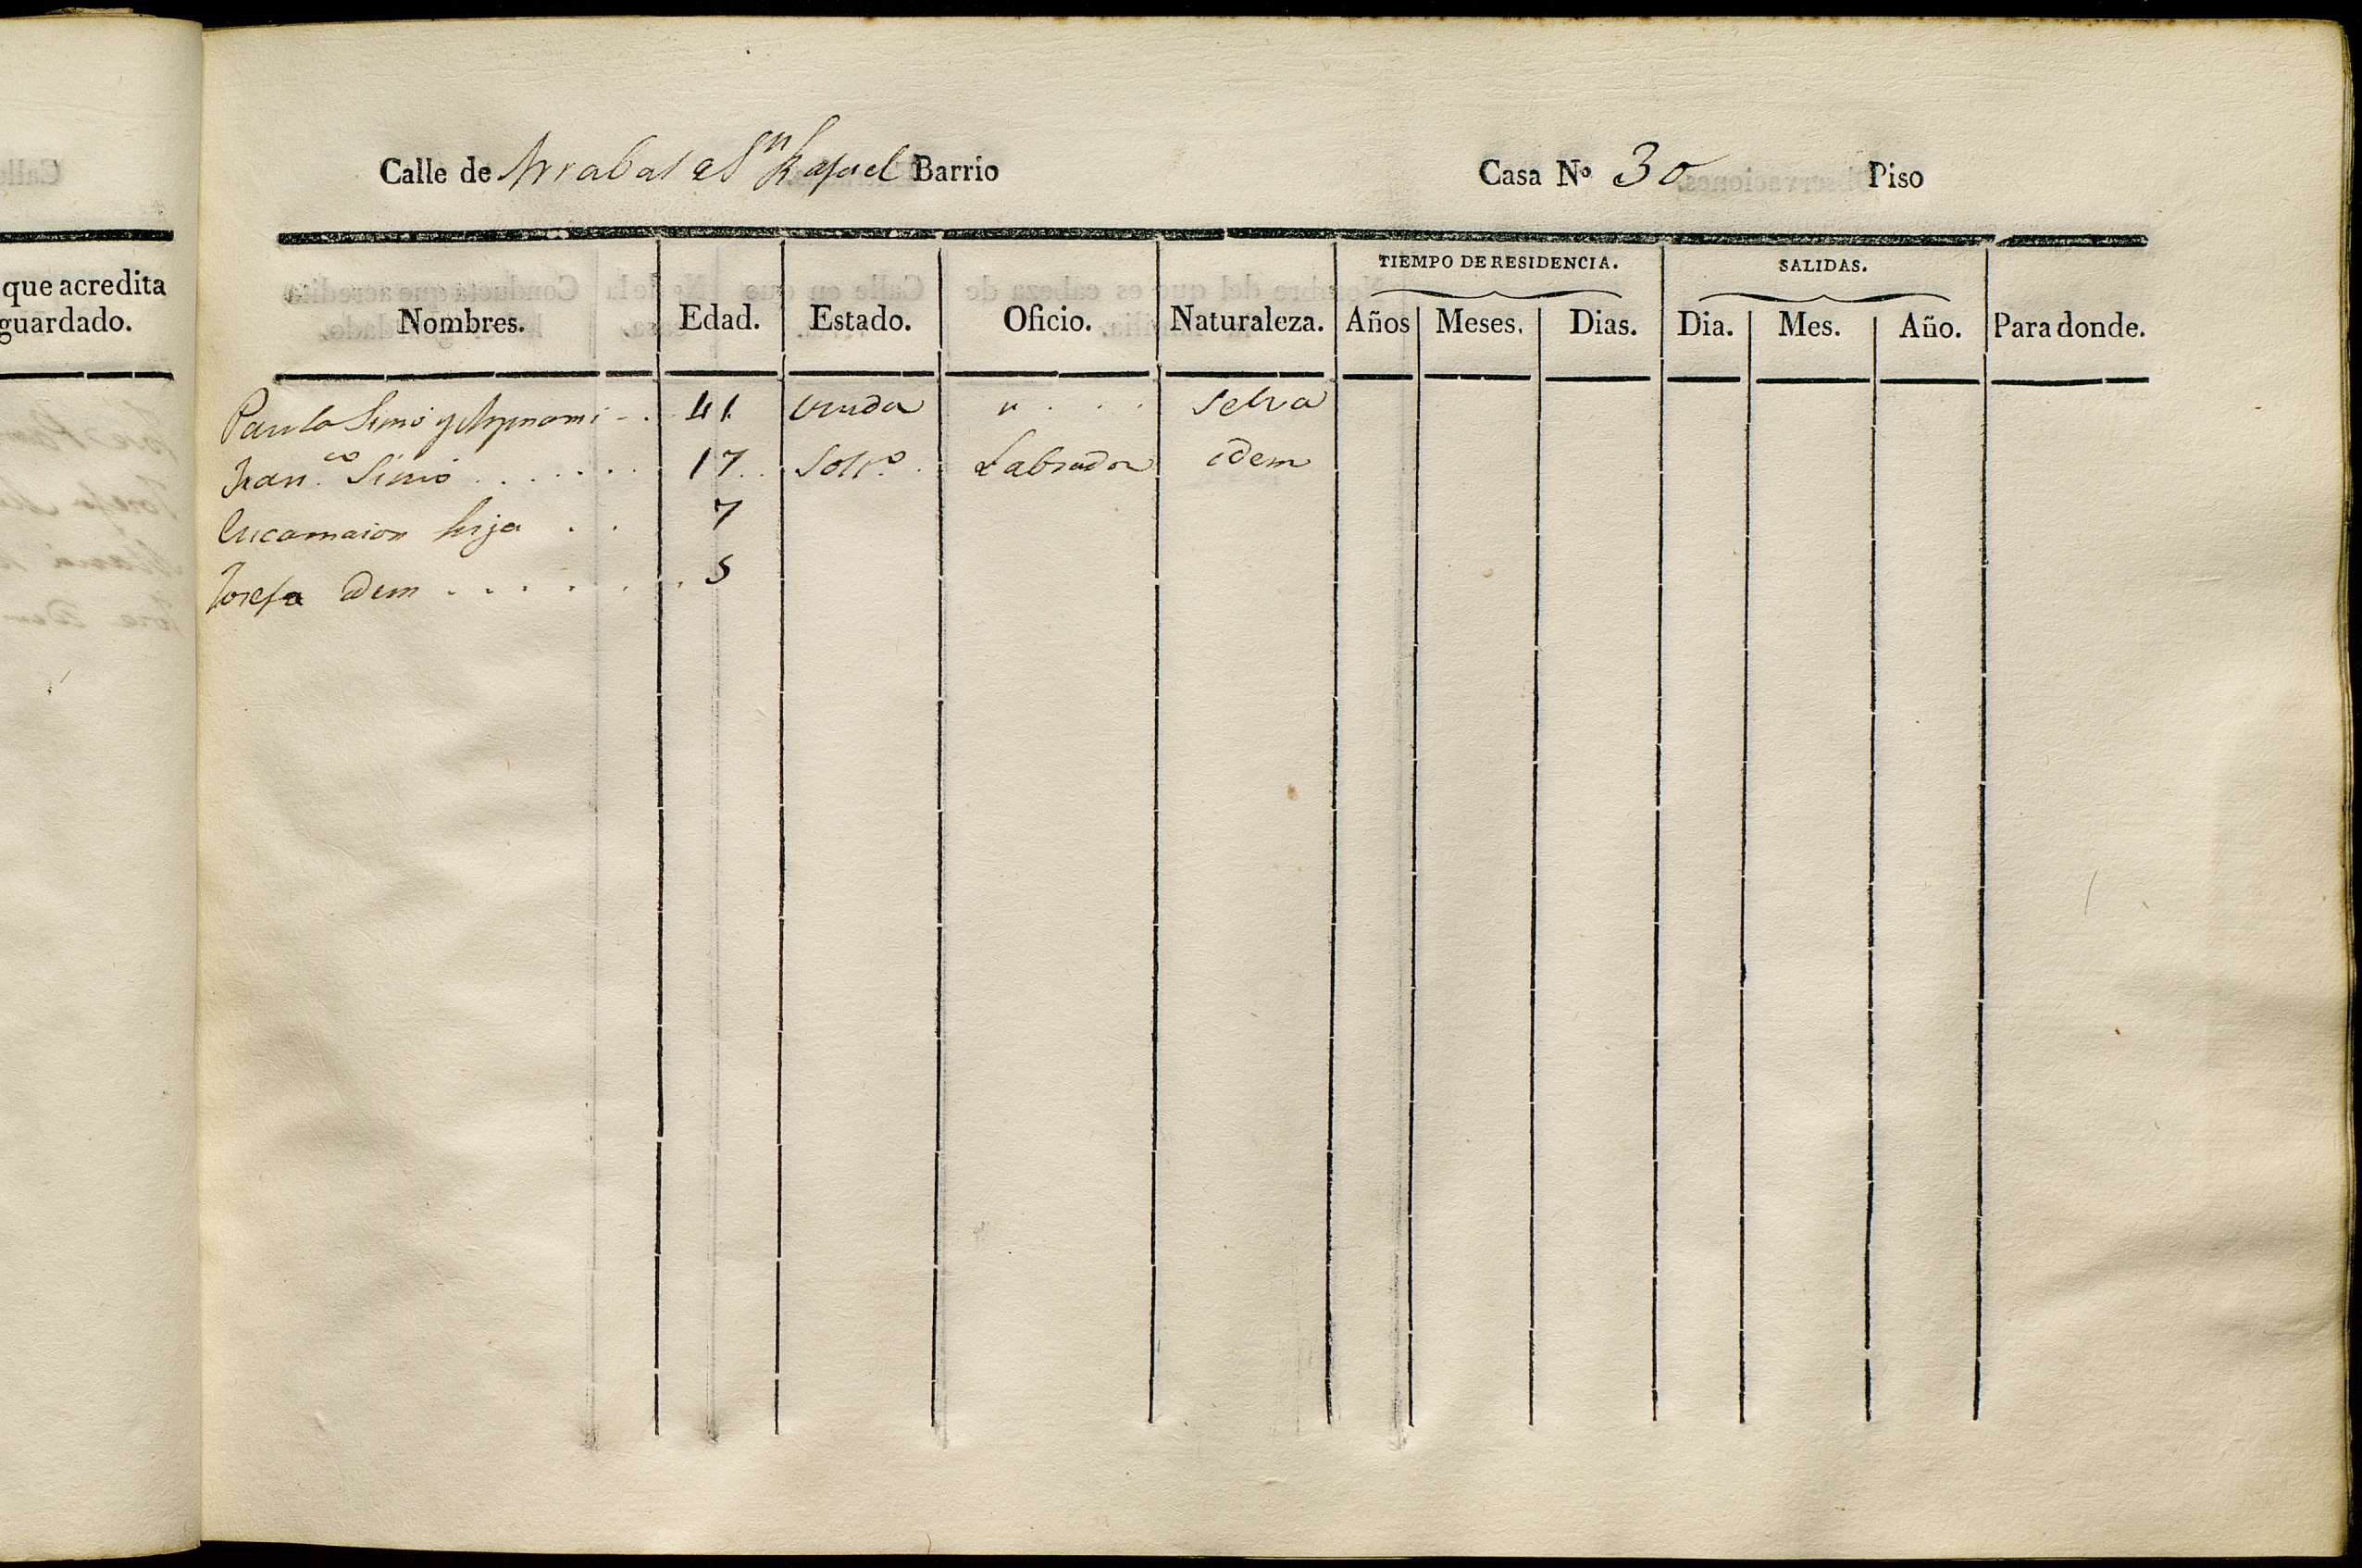 que acredita
guardado.
Calle de Arrabal a Sn Rafael Barrio
Casa No 30 Piso
TIEMPO DE RESIDENCIA. SALIDAS.
Nombres. Edad. Estado. Oficio. Naturaleza. Años Meses. Dias. Dia. Mes. Año. Para donde.
Paula Simó y 41. Viuda " . . . Selva
Fran.co Simó . . . . . . 17 . . Solt.o . Labrador idem
Encarnacion hija . . 7
Josefa idem . . . . . . 5